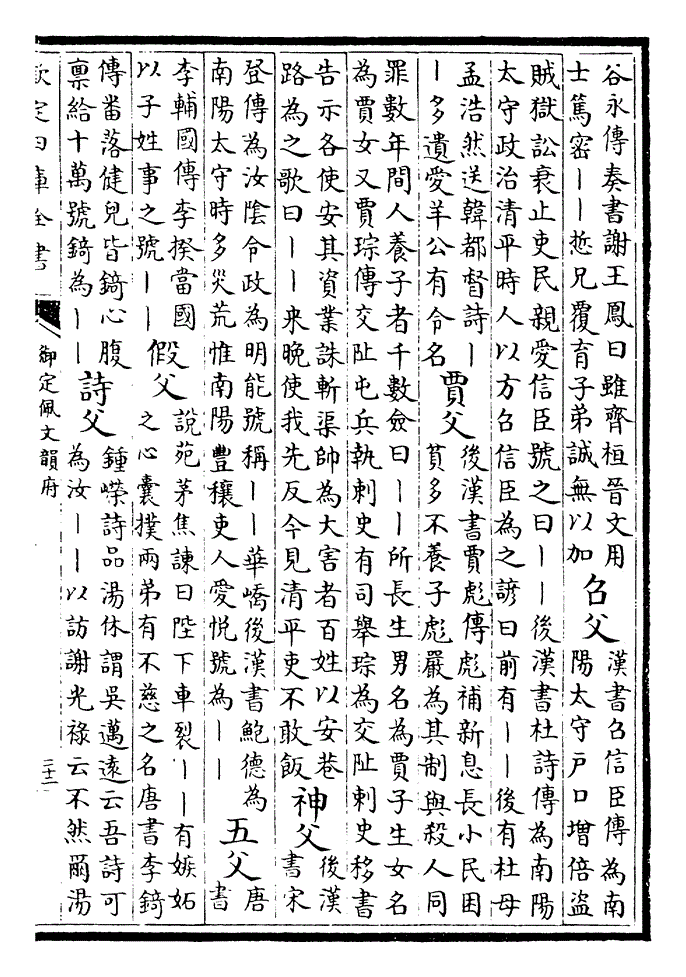 谷永傳奏書謝王鳳曰雖齊桓晉文用
士篤密丨丨悊兄覆育子弟誠無以加
召父
漢書召信臣傳為南
陽太守戶口增倍盜
賊獄訟衰止吏民親愛信臣號之曰丨丨後漢書杜詩傳為南陽
太守政治清平時人以方召信臣為之諺曰前有丨丨後有杜母
孟浩然送韓都督詩丨
丨多遺愛羊公有令名
賈父
後漢書賈彪傳彪補新息長小民困
貧多不養子彪嚴為其制與殺人同
罪數年間人養子者千數僉曰丨丨所長生男名為賈子生女名
為賈女又賈琮傳交阯屯兵執刺史有司舉琮為交阯刺史移書
告示各使安其資業誅斬渠帥為大害者百姓以安巷
路為之歌曰丨丨来晚使我先反今見清平吏不敢飯
神父
後漢
書宋
登傳為汝陰令政為明能號稱丨丨華嶠後漢書鮑德為
南陽太守時多災荒惟南陽豐穰吏人愛悅號為丨丨
五父
唐
書
李輔國傳李揆當國
以子姓事之號丨丨
假父
說苑茅焦諫曰陛下車裂丨丨有嫉妬
之心囊撲兩弟有不慈之名唐書李錡
傳畨落健兒皆錡心腹
稟給十萬號錡為丨丨
詩父
鍾嶸詩品湯休謂吳邁遠云吾詩可
為汝丨丨以訪謝光祿云不然爾湯
欽定四庫全書
御定佩文韻府
三十二